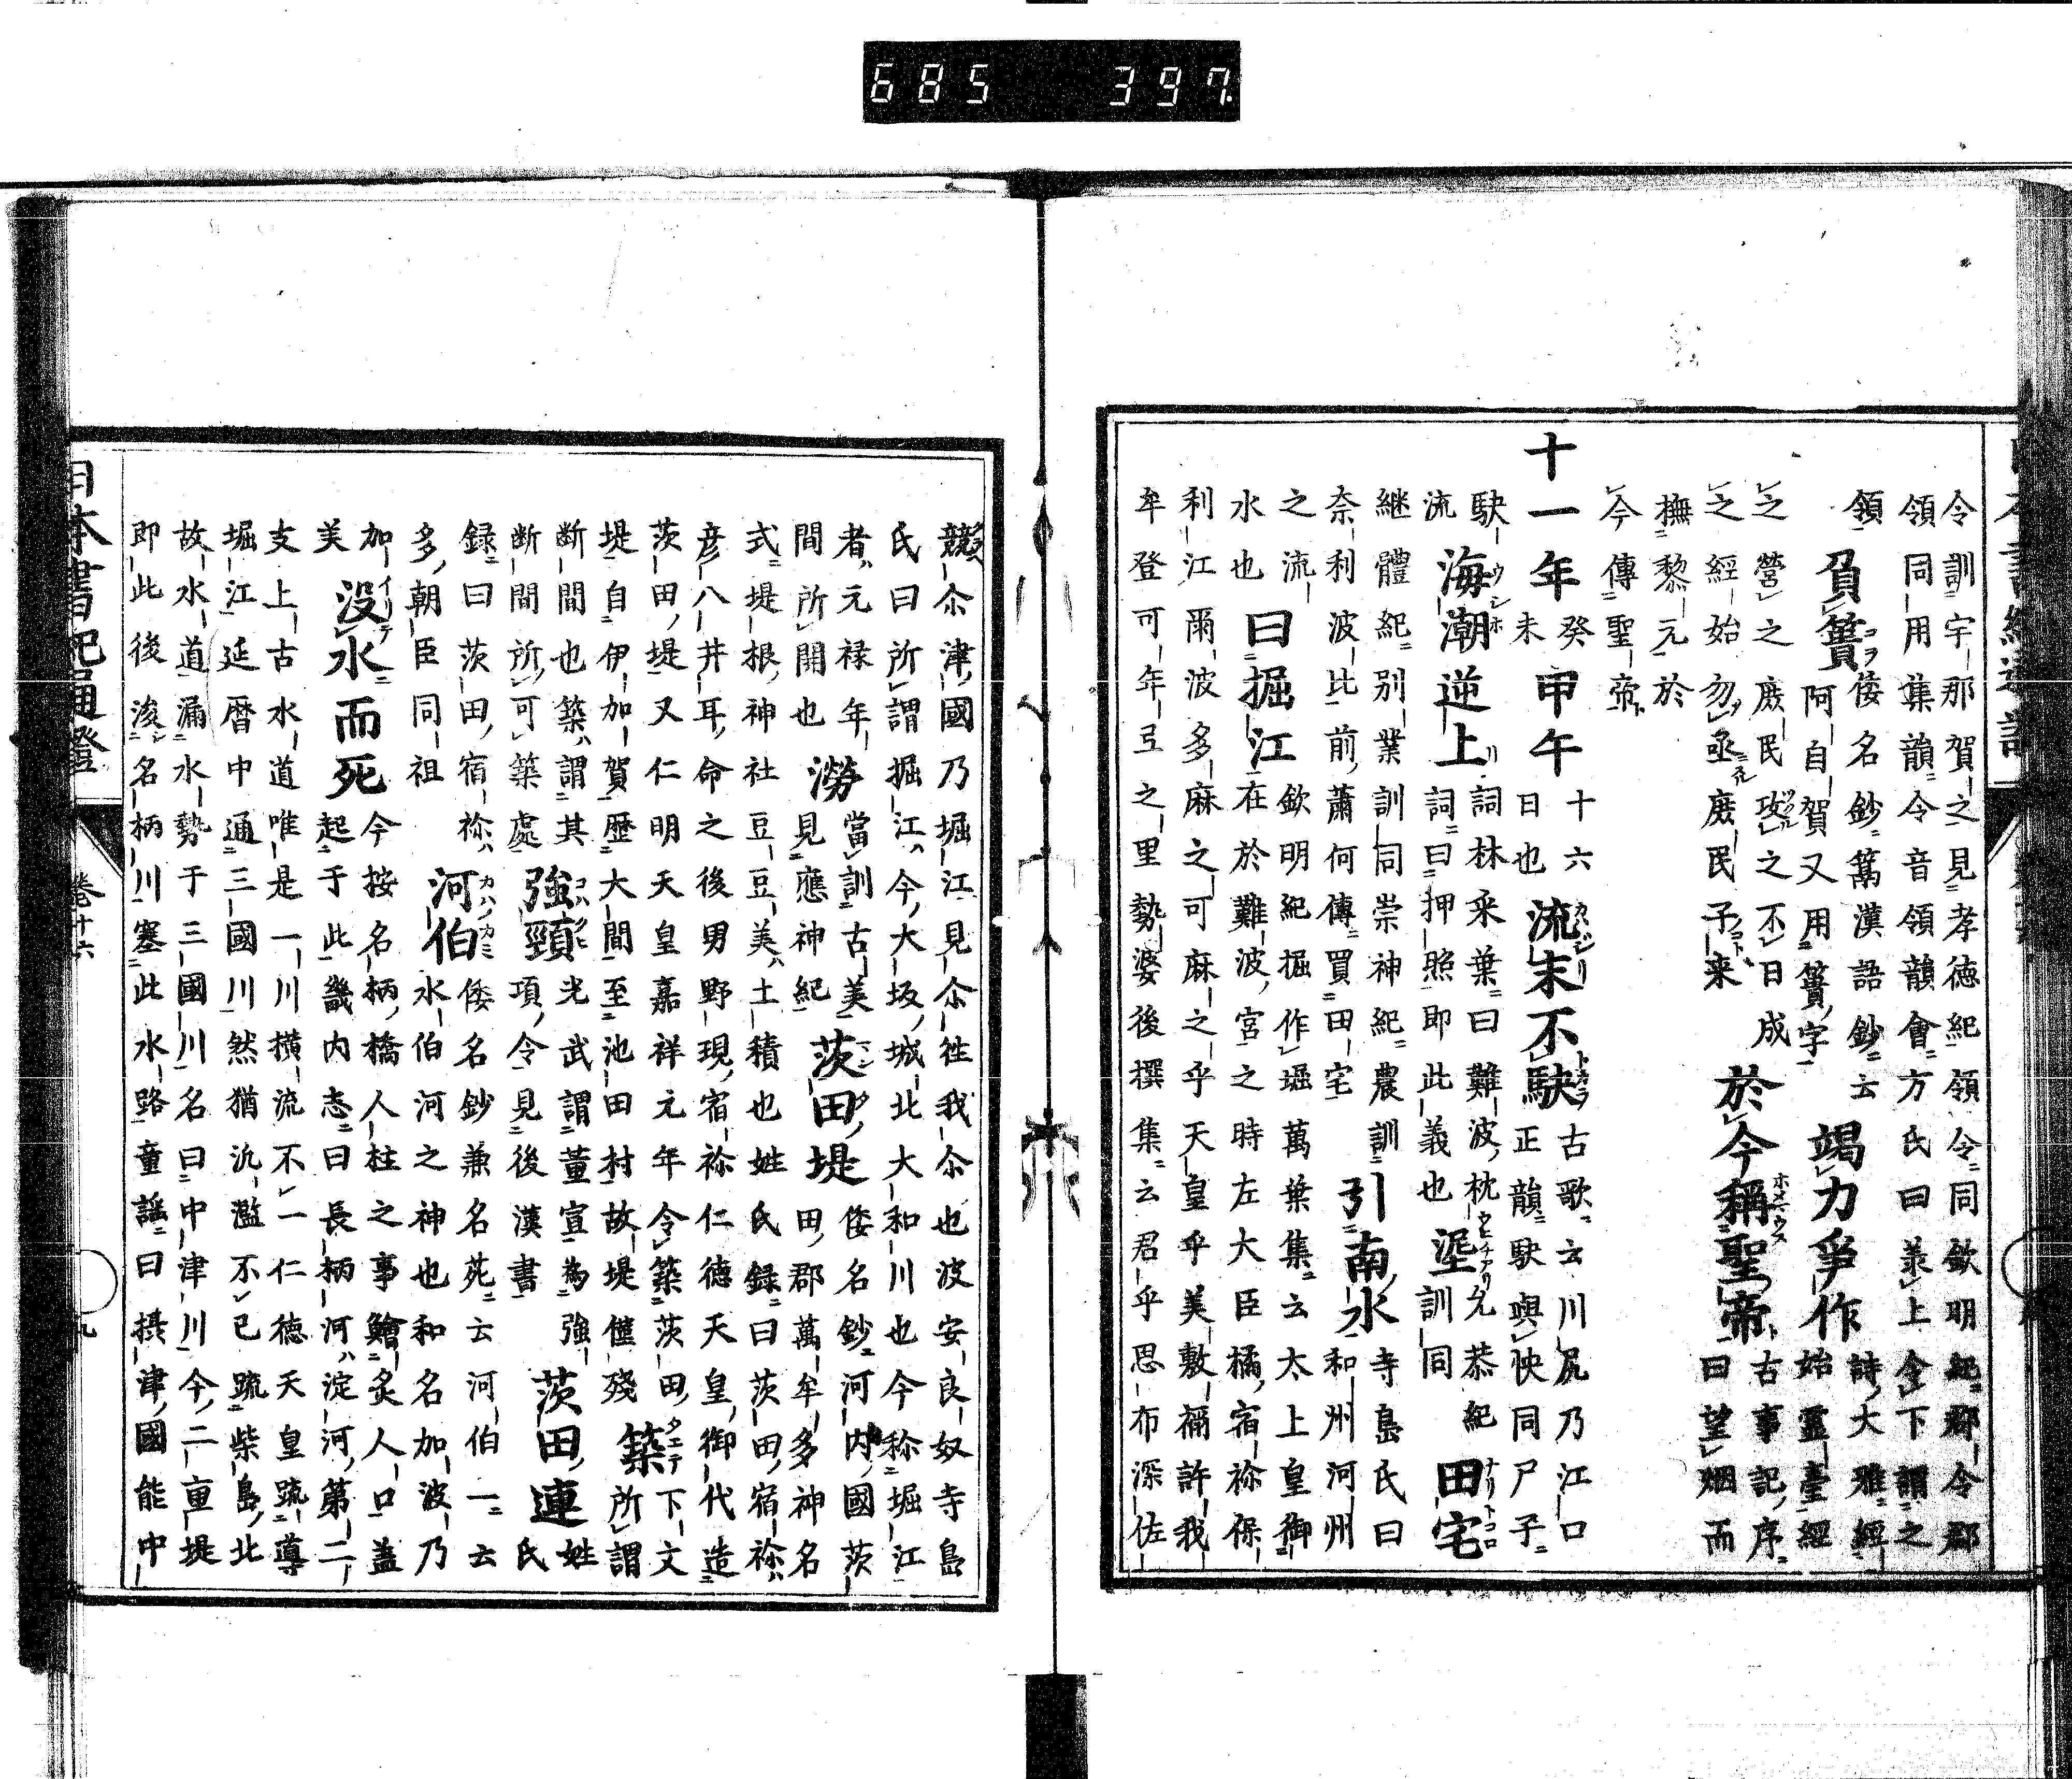 685 397
令訓宇那賀之見孝徳紀領令同欽明紀郡令郡
領同用集韻令音領韻會方氏曰美上令下謂之
領 負簣 倭名鈔籌漢語鈔云 竭力爭作 詩大雅經
阿自賀又用簣字 始靈臺經
之營之庶民攻之不日成 於今稱聖帝 古事記序
之經始勿亟庶民子来 曰望烟而
撫黎元於
今傳聖帝
十一年 癸未 甲午 十六日也 流末不駃 古歌云川尻乃江口
正韻駃與快同尸子
駃流 海潮逆上 詞林采葉曰難波枕 垦 允恭紀 田宅
詞曰押照即此義也 訓同
継體紀別業訓同崇神紀農訓 引南水 寺島氏曰
奈利波比前蕭何傳買田宅 和州河州
之流 曰掘江 欽明紀掘作堀萬葉集云太上皇御
水也 在於難波宮之時左大臣橘宿祢保
利江爾波多麻之可麻之乎天皇乎美敷祢許我
牟登可年弖之里勢婆後撰集云君乎思布深佐
競尒津國乃堀江見尒徃我尒也波安良奴寺島
氏曰所謂掘江今大坂城北大和川也今称堀江
者元禄年 澇 當訓古美 茨田堤 倭名鈔河内國茨
間所開也 見應神紀 田郡萬牟多神名
式堤根神社豆豆美土積也姓氏録曰茨田宿祢
彦八井耳命之後男野現宿祢仁德天皇御代造
茨田堤又仁明天皇嘉祥元年令築茨田 築 下文
堤自伊加賀歷大間至池田村故堤僅殘 所謂
断間也築謂其 強頸 光武謂董宣為強 茨田連 姓
断間所可築處 項令見後漢書 氏
録曰茨田宿祢 河伯 倭名鈔兼名苑云河伯一云
多朝臣同祖 水伯河之神也和名加波乃
加美 没水而死 今按名柄橋人柱之事鱠炙人口蓋
起于此畿内志曰長柄河淀河第二
支上古水道唯是一川横流不一仁德天皇疏導
堀江延暦中通三國川然猶氿濫不已疏柴島北
故水道漏水勢于三國川名曰中津川今二重堤
即此後浚名柄川塞此水路童謡曰摂津國能中
日本書紀通證 卷十六 九